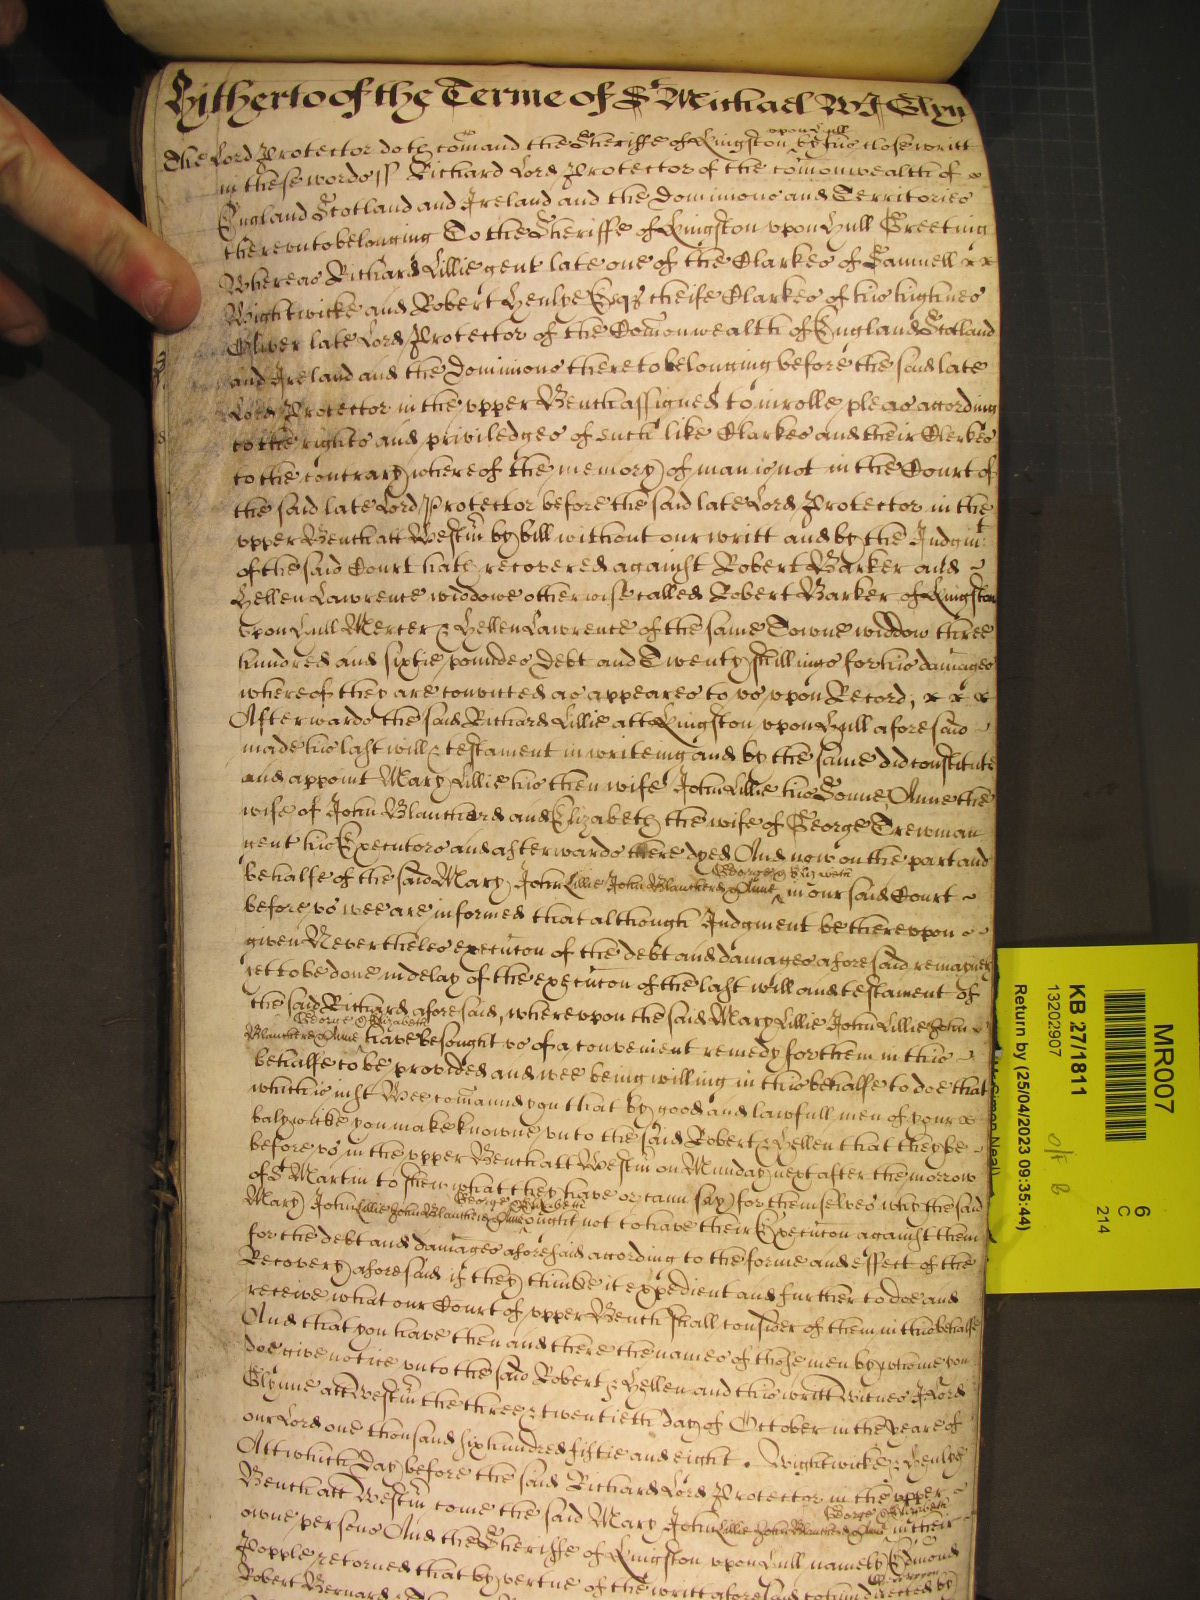 Hitherto of the Terme of St Michael Wi: Glyn
The Lord Protector doth comand the Sheriffe of Kingston upon Hull by his close writt
in these words ss Richard Lord Protector of the comonwealth of
England Scotland and Ireland and the Dominions and Territories
thereunto belonging To the Sheriffe of Kingston upon Hull Greeting
Whereas Richard Lillie gent late one of the Clarkes of Samuell x x
Wightwicke and Robert Henlye Esqs cheife Clarkes of his highnes
Oliver late Lord Protector of the Comonwealth of England Scotland
and Ireland and the Dominions thereto belonging before the said late
Lord Protector in the upper Bench assigned to inrolle pleas according
to the rights and priviledges of such like Clarkes and their Clerkes
to the contrary whereof the memory of man is not in the Court of
the said late Lord Protector before the said late Lord Protector in the
upper Bench att Westm by bill without our writt and by the Judgmt
of the said Court hath recovered against Robert Barker and
Hellen Lawrence widdowe otherwise called Robert Barker of Kingston
upon Hull Mercer & Hellen Lawrence of the same Towne widdow three
hundred and sixtie poundes Debt and Twenty shillings for his damages
whereof they are convicted as appeares to us upon Record, x x x
Afterwards the said Richard Lillie att Kingston upon Hull aforesaid
made his last will & testament in writeing and by the same did constitute
and appoint Mary Lillie his then wife John Lillie his Sonne Anne the
wife of John Blanchard and Elizabeth the wife of George Trewman
gent his Executors and afterwards there dyed And now on the part and
behalfe of the said Mary John Lillie John Blancherd & Anne George & Elizabeth in our said Court
before us wee are informed that although Judgment be thereupon
given Nevertheles execucon of the debt and damages aforesaid remayneth
yet to be done in delay of the execucon of the last will and testament of
the said Richard aforesaid, whereupon the said Mary Lillie John Lillie John
Blancherd & Anne George & Elizabeth have besought us of a convenient remedy for them in this
behalfe to be provided and wee being willing in this behalfe to doe that
which is just Wee comannd you that by good and lawfull men of your
balywicke you make knowne unto the said Robert & Hellen that they be
before us in the upper Bench att Westm on Munday next after the morrow
of St Martin to shew what they have or cann say for themselves why the said
Mary John Lillie John Blancherd & Anne George & Elizabeth ought not to have their Execucon against them
for the debt and damages aforesaid according to the forme and effect of the
Recovery aforesaid if they thinke it expedient and further to doe and
receive what our Court of upper Bench shall consider of them in this behalfe
And that you have then and there the names of those men by whome you
doe give notice unto the said Robert & Hellen and this writt Witnes J Lord
Glynne att Westm the three & twentieth day of October in the yeare of
our Lord one thousand six hundred fiftie and eight . Wightwicke & Henlye
Att which Day before the said Richard Lord Protector in the upper
Bench att Westm come the said Mary John Lillie John Blancherd & Anne George & Elizabeth in their
owne persons And the Sheriffe of Kingston upon Hull namely Edmond
Popple retorned that by vertue of the writt aforesaid to him directed by
Robert Bernard
MR007
KB 27/1811
13202907
Return by (25/04/2023 09:35:44)
6
C
214
O/F B